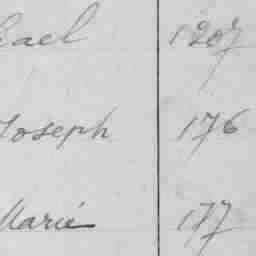 kael 1207
Joseph 176
Marie 177